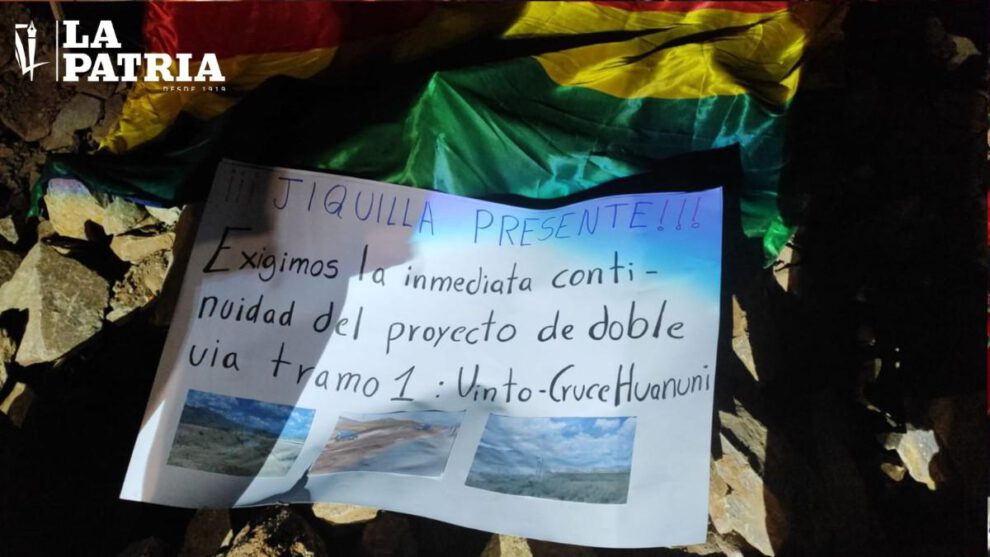 LA
PATRIA
DESDE 1919
¡¡¡ JIQUILLA PRESENTE!!!
Exigimos la inmediata conti-
nuidad del proyecto de doble
via tramo 1 : Vinto-Cruce Huanuni